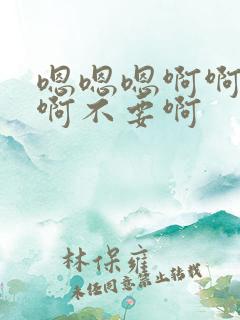 嗯嗯嗯啊啊
啊不要啊
林保雍
未经同意禁止转载